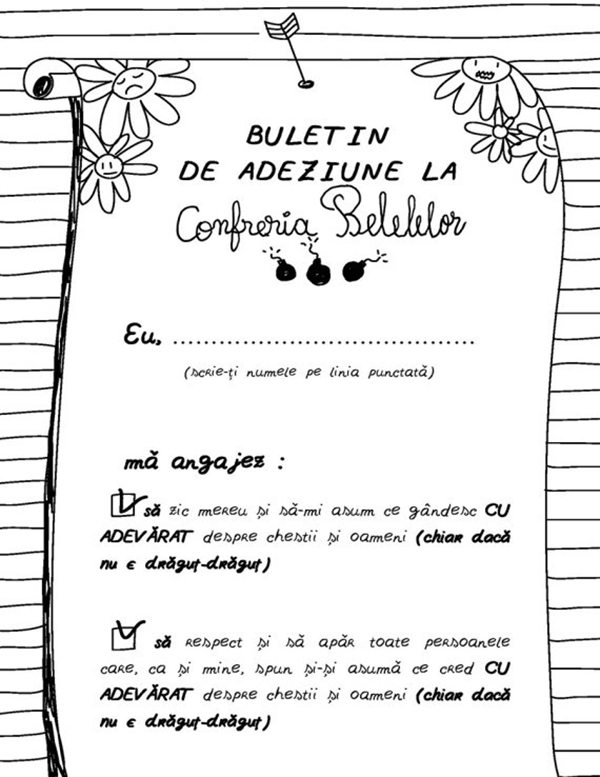 BULETIN
DE ADEZIUNE LA
Confreria Belelelor
Eu, ......................................
(scrie-ți numele pe linia punctată)
mă angajez :
să zic mereu și să-mi asum ce gândesc CU
ADEVĂRAT despre chestii și oameni (chiar dacă
nu e drăguț-drăguț)
să respect și să apăr toate persoanele
care, ca și mine, spun și-și asumă ce cred CU
ADEVĂRAT despre chestii și oameni (chiar dacă
nu e drăguț-drăguț)